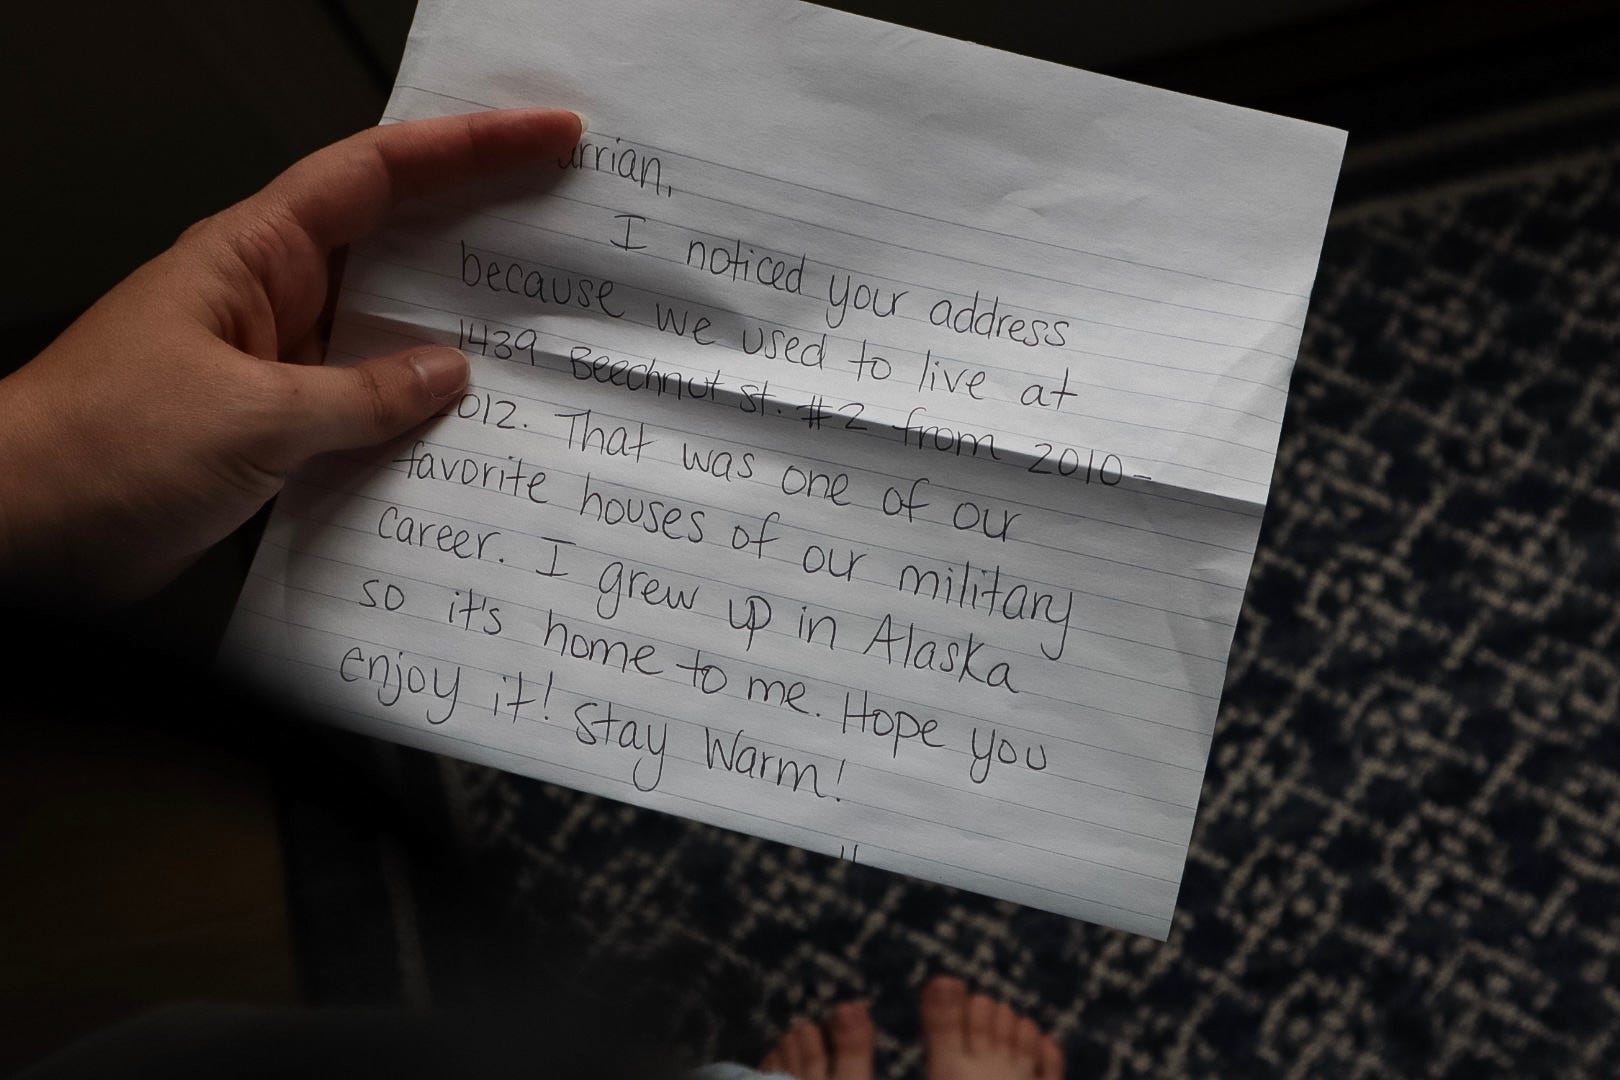 arrian,
I noticed your address
because we used to live at
1439 Beechnut St. #2 from 2010-
2012. That was one of our
favorite houses of our military
career. I grew up in Alaska
so it's home to me. Hope you
enjoy it! Stay Warm!